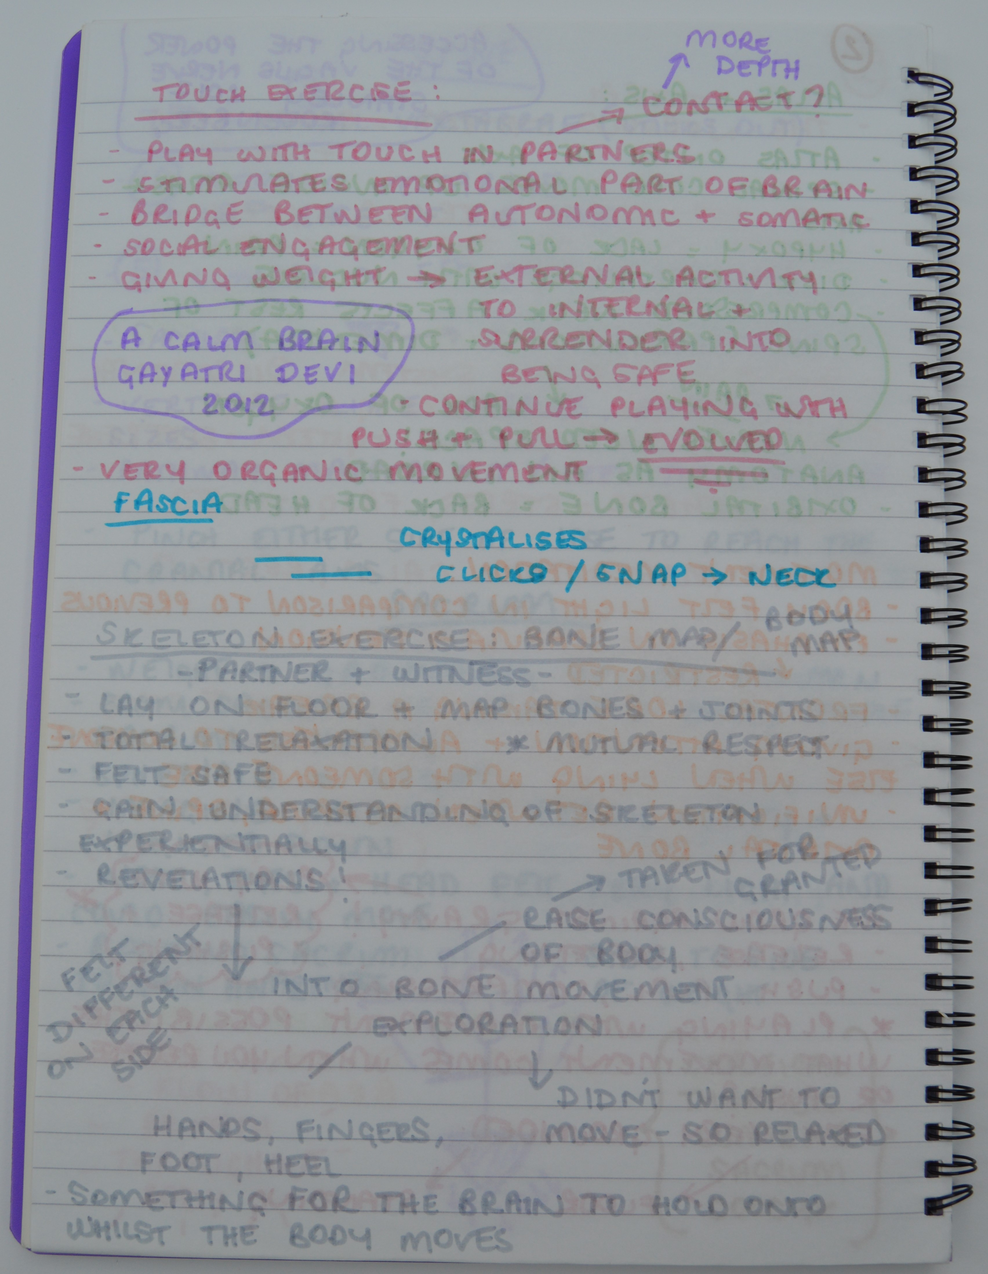 MORE
DEPTH
TOUCH EXERCISE :
→ CONTACT?
- PLAY WITH TOUCH IN PARTNERS
- STIMULATES EMOTIONAL PART OF BRAIN
- BRIDGE BETWEEN AUTONOMIC + SOMATIC
- SOCIAL ENGAGEMENT
- GIVING WEIGHT → EXTERNAL ACTIVITY
TO INTERNAL +
SURRENDER INTO
BEING SAFE
A CALM BRAIN
GAYATRI DEVI
2012
CONTINUE PLAYING WITH
PUSH + PULL → EVOLVED
- VERY ORGANIC MOVEMENT
FASCIA
CRYSTALISES
CLICKS / SNAP → NECK
SKELETON EXERCISE : BONE MAP / BODY MAP
- PARTNER + WITNESS -
- LAY ON FLOOR + MAP BONES + JOINTS
- TOTAL RELAXATION * MUTUAL RESPECT
- FELT SAFE
- GAIN UNDERSTANDING OF SKELETON
EXPERIENTIALLY
- REVELATIONS!
→ TAKEN FOR
GRANTED
RAISE CONSCIOUSNESS
OF BODY
FELT
DIFFERENT
ON EACH
SIDE
INTO BONE MOVEMENT
EXPLORATION
DIDN'T WANT TO
MOVE - SO RELAXED
HANDS, FINGERS,
FOOT, HEEL
- SOMETHING FOR THE BRAIN TO HOLD ONTO
WHILST THE BODY MOVES